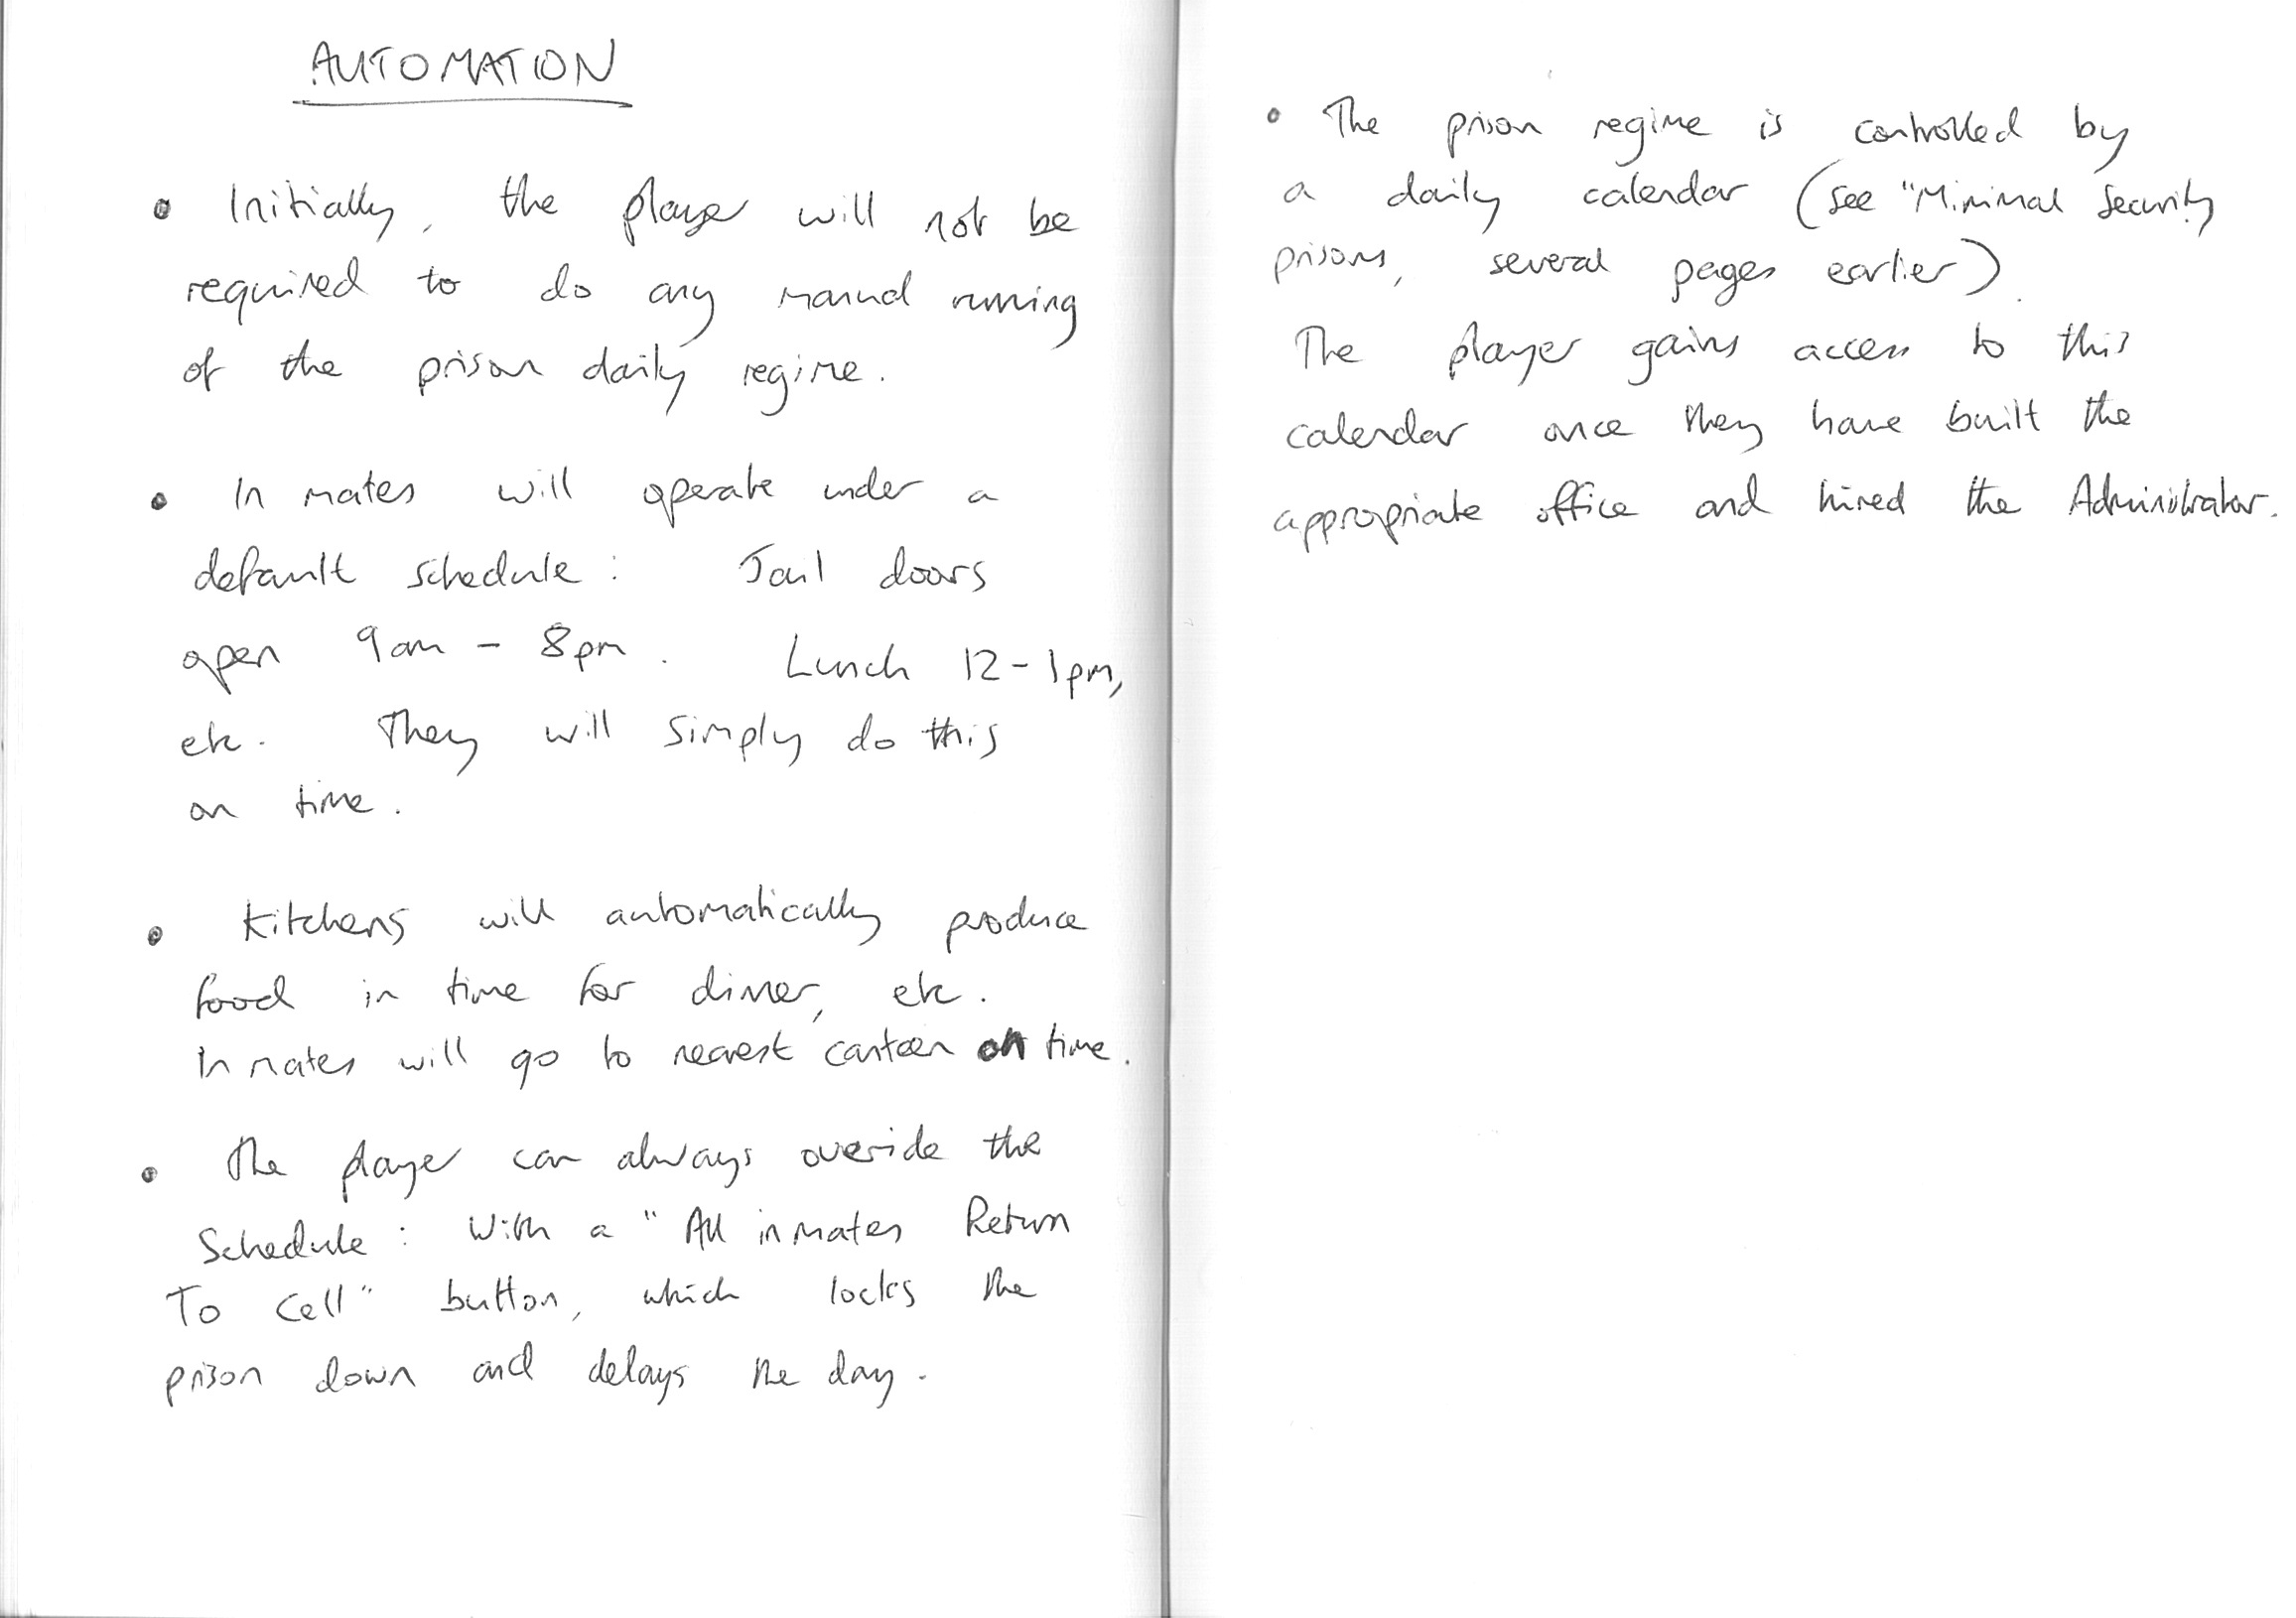 AUTOMATION
• Initially, the player will not be
required to do any manual running
of the prison daily regime.
• In mates will operate under a
default schedule: Jail doors
open 9am - 8pm. Lunch 12-1pm,
etc. They will simply do this
on time.
• Kitchens will automatically produce
food in time for dinner, etc.
In mates will go to nearest canteen on time.
• The player can always override the
Schedule: With a "All inmates Return
To Cell" button, which locks the
prison down and delays the day.
• The prison regime is controlled by
a daily calendar (see "Minimal Security
prisons, several pages earlier).
The player gains access to this
calendar once they have built the
appropriate office and hired the Administrator.